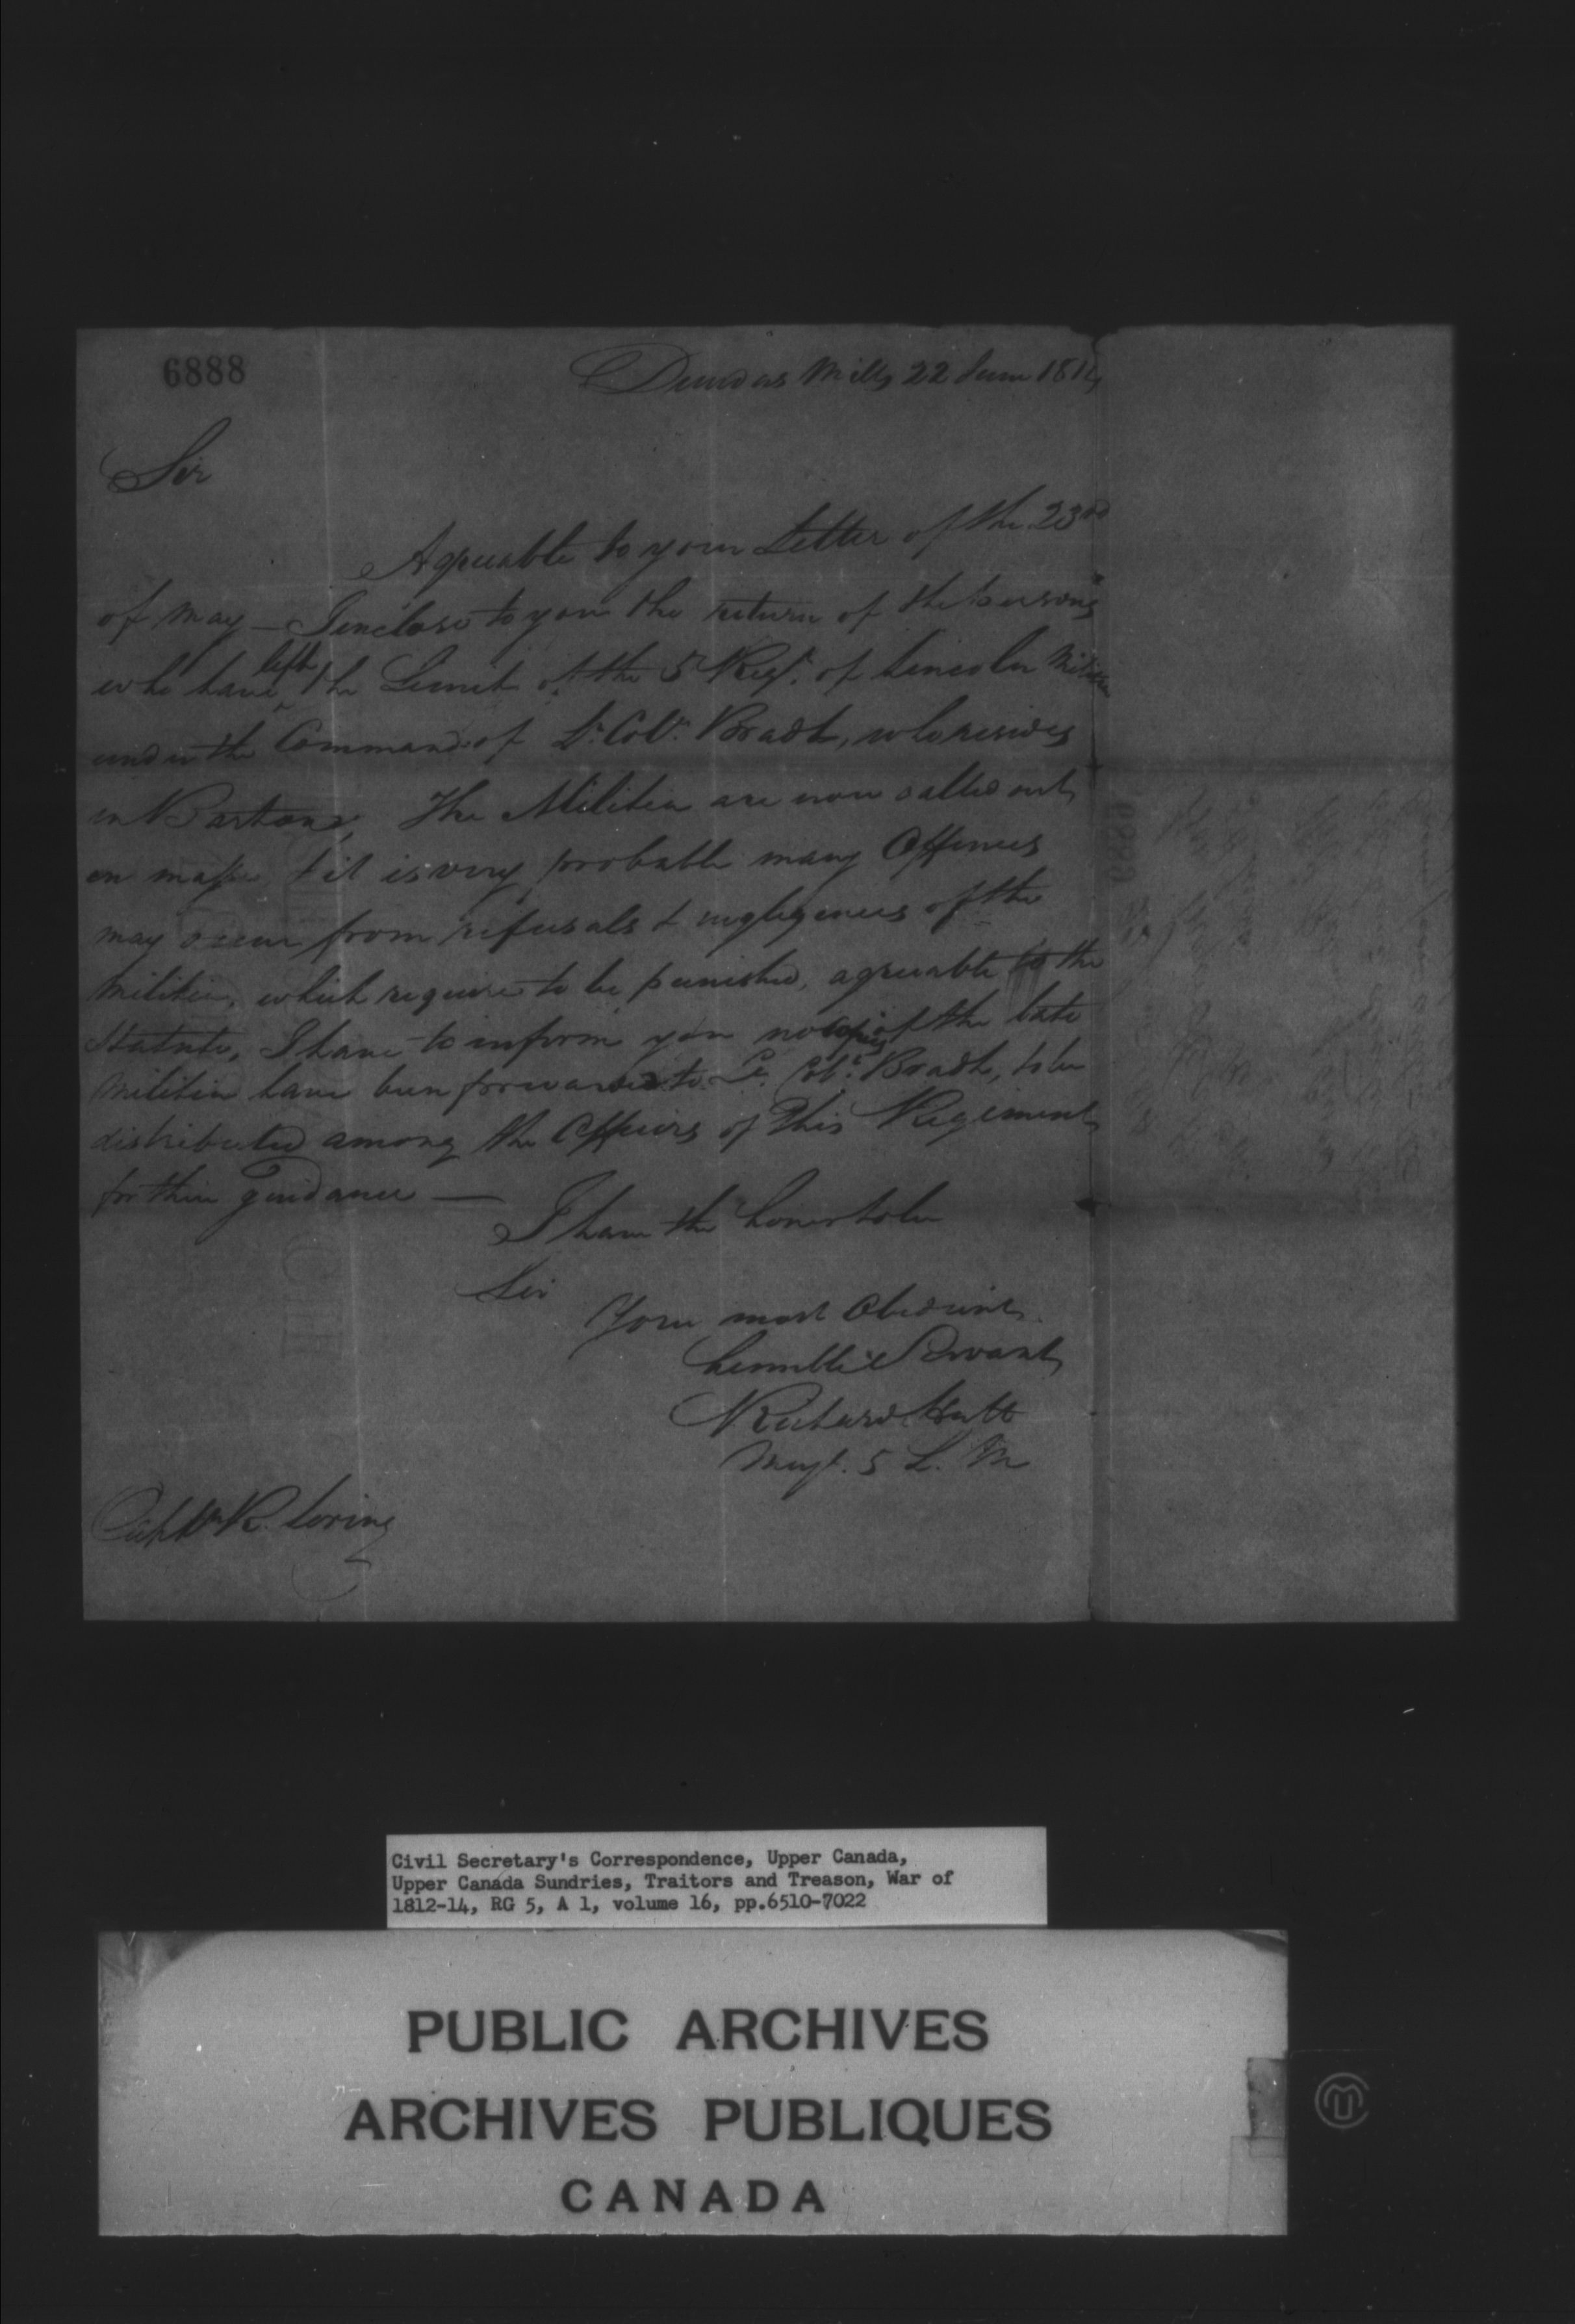 6888
Dundas Mills 22 June 1814
Sir
Agreeable to your Letter of the 23rd
of May — I inclose to you the return of the persons
who have left the Limit of the 5 Regt. of Lincoln Militia
under the Command of Lt. Coll. Bradt, who resides
in Barton, The Militia are now called out
en masse & it is very probable many Offences
may occur from refusals & negligences of the
Militia, which require to be punished, agreeable to the
Statute, I have to inform you no copies of the late
Militia have been forwarded to Lt. Col. Bradt, to be
distributed among the Officers of this Regiment
for their guidance —
I have the honor to be
Sir
Your most Obedient
humble Servant
Richard Hatt
Majr. 5 L. M
Captn R. Loring
Civil Secretary's Correspondence, Upper Canada,
Upper Canada Sundries, Traitors and Treason, War of
1812-14, RG 5, A 1, volume 16, pp.6510-7022
PUBLIC ARCHIVES
ARCHIVES PUBLIQUES
CANADA